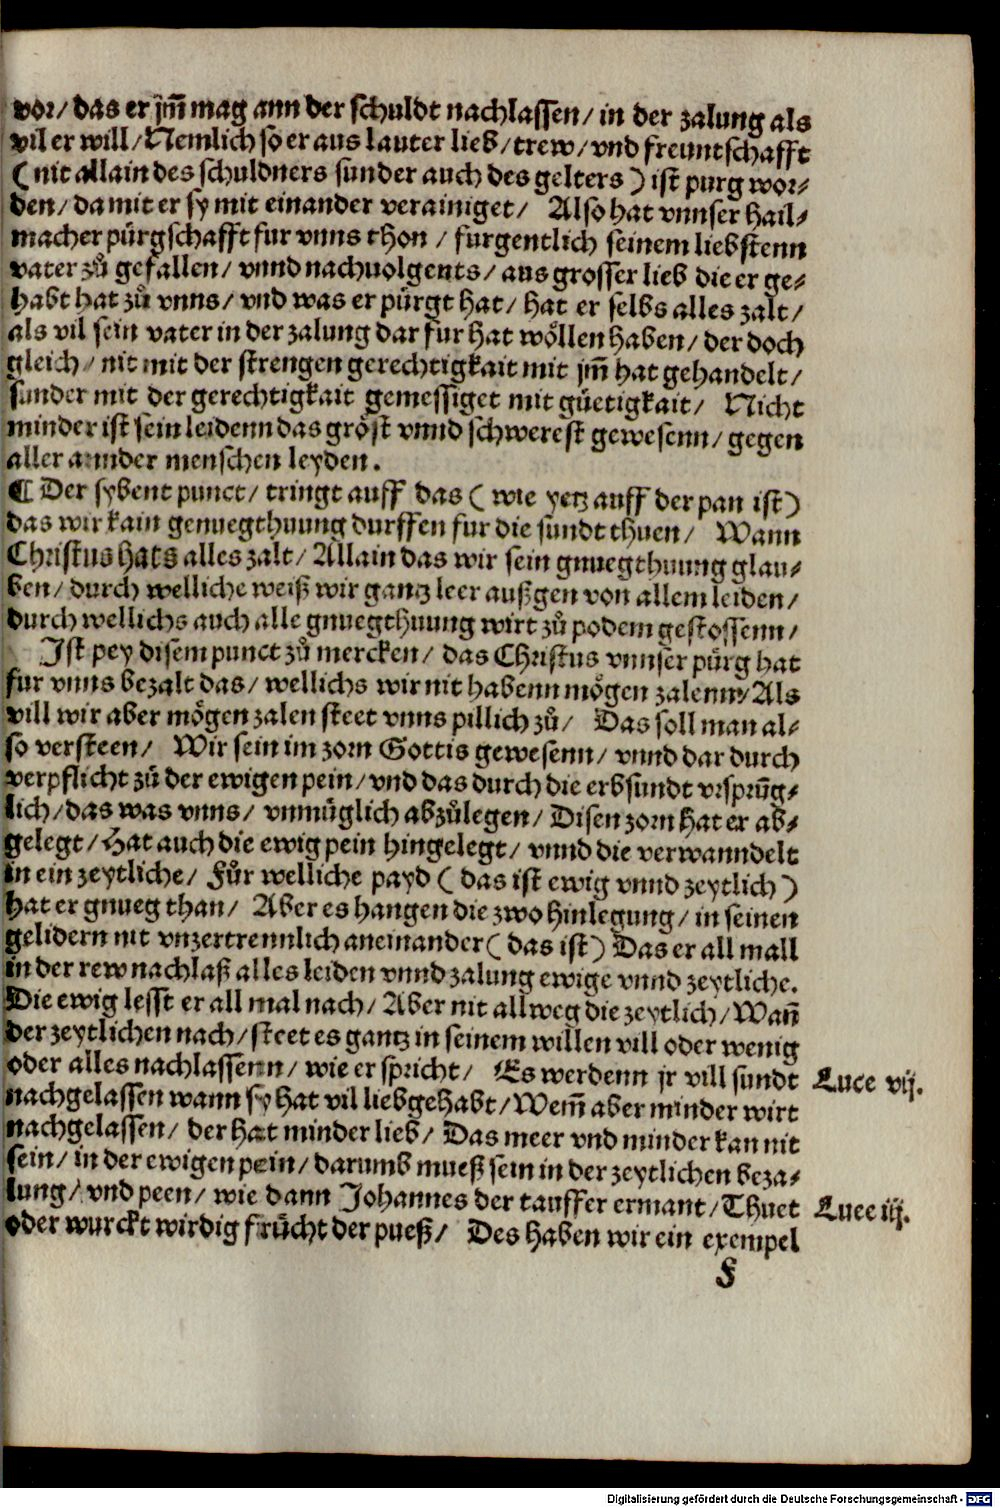 vor/ das er jm̃ mag ann der schuldt nachlassen/ in der zalung als
vil er will/ Nemlich so er aus lauter lieb/ trew/ vnd freuntschafft
( nit allain des schuldners sunder auch des gelters ) ist purg wor-
den/ da mit er sy mit einander verainiget/ Also hat vnnser hail-
macher pürgschafft fur vnns thon / furgentlich seinem liebstenn
vater zů gefallen/ vnnd nachuolgents/ aus grosser lieb die er ge-
habt hat zů vnns/ vnd was er pürgt hat/ hat er selbs alles zalt/
als vil sein vater in der zalung dar fur hat wöllen haben/ der doch
gleich/ nit mit der strengen gerechtigkait mit jm̃ hat gehandelt/
sunder mit der gerechtigkait gemessiget mit güetigkait/ Nicht
minder ist sein leidenn das gröst vnnd schwerest gewesenn/ gegen
aller annder menschen leyden.
¶ Der sybent punct/ tringt auff das ( wie yetz auff der pan ist )
das wir kain genuegthuung durffen fur die sundt thuen/ Wann
Christus hats alles zalt/ Allain das wir sein gnuegthuung glau-
ben/ durch welliche weiß wir gantz leer außgen von allem leiden/
durch wellichs auch alle gnuegthuung wirt zů podem gestossenn/
Ist pey disem punct zů mercken/ das Christus vnnser pürg hat
fur vnns bezalt das/ wellichs wir nit habenn mögen zalenn/ Als
vill wir aber mögen zalen steet vnns pillich zů/ Das soll man al-
so versteen/ Wir sein im zorn Gottis gewesenn/ vnnd dar durch
verpflicht zů der ewigen pein/ vnd das durch die erbsundt vrsprüg-
lich/ das was vnns/ vnmüglich abzůlegen/ Disen zorn hat er ab-
gelegt/ Hat auch die ewig pein hingelegt/ vnnd die verwanndelt
in ein zeytliche/ Für welliche payd ( das ist ewig vnnd zeytlich )
hat er gnueg than/ Aber es hangen die zwo hinlegung/ in seinen
gelidern nit vnzertrennlich aneinander ( das ist ) Das er all mall
in der rew nachlaß alles leiden vnnd zalung ewige vnnd zeytliche.
Die ewig lesst er all mal nach/ Aber nit allweg die zeytlich/ Wañ
der zeytlichen nach/ steet es gantz in seinem willen vill oder wenig
oder alles nachlassenn/ wie er spricht/ Es werdenn jr vill sundt
Luce vij.
nachgelassen wann sy hat vil liebgehabt/ Wem̃ aber minder wirt
nachgelassen/ der hat minder lieb/ Das meer vnd minder kan nit
sein/ in der ewigen pein/ darumb mueß sein in der zeytlichen beza-
lung/ vnd peen/ wie dann Johannes der tauffer ermant/ Thuet
Luce iij.
oder wurckt wirdig frücht der pueß/ Des haben wir ein exempel
F
Digitalisierung gefördert durch die Deutsche Forschungsgemeinschaft - DFG